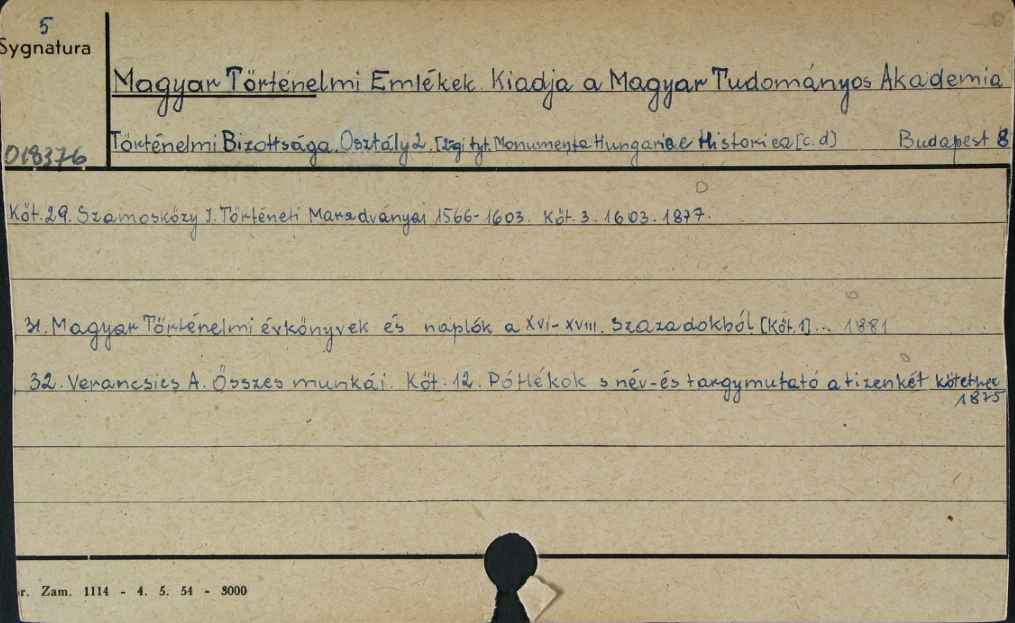 5
Sygnatura
Magyar Történelmi Emlékek. Kiadja a Magyar Tudományos Akademia
018376
Történelmi Bizottsága. Osztály 2. [tyt. Monumenta Hungariae Historica [c. d) Budapest 8
Köt. 29. Szamosközy I. Történeti Maradványai 1566-1603. Köt. 3. 1603. 1877.
31. Magyar Történelmi évkönyvek és naplók a XVI-XVIII. Szazadokból [Köt. 1]... 1881
32. Verancsics A. Összes munkái. Köt. 12. Pótlékok s név-és targymutató a tizenkét kötethez
1875
r. Zam. 1114 - 4. 5. 54 - 3000